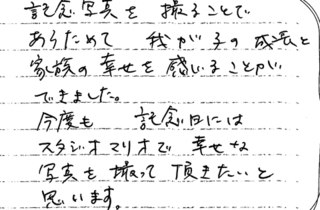 記念写真を 撮ることで
あらためて 我が子の成長と
家族の幸せを感じることが
できました。
今度も 記念日には
スタジオマリオで 幸せな
写真を撮って頂きたいと
思います。